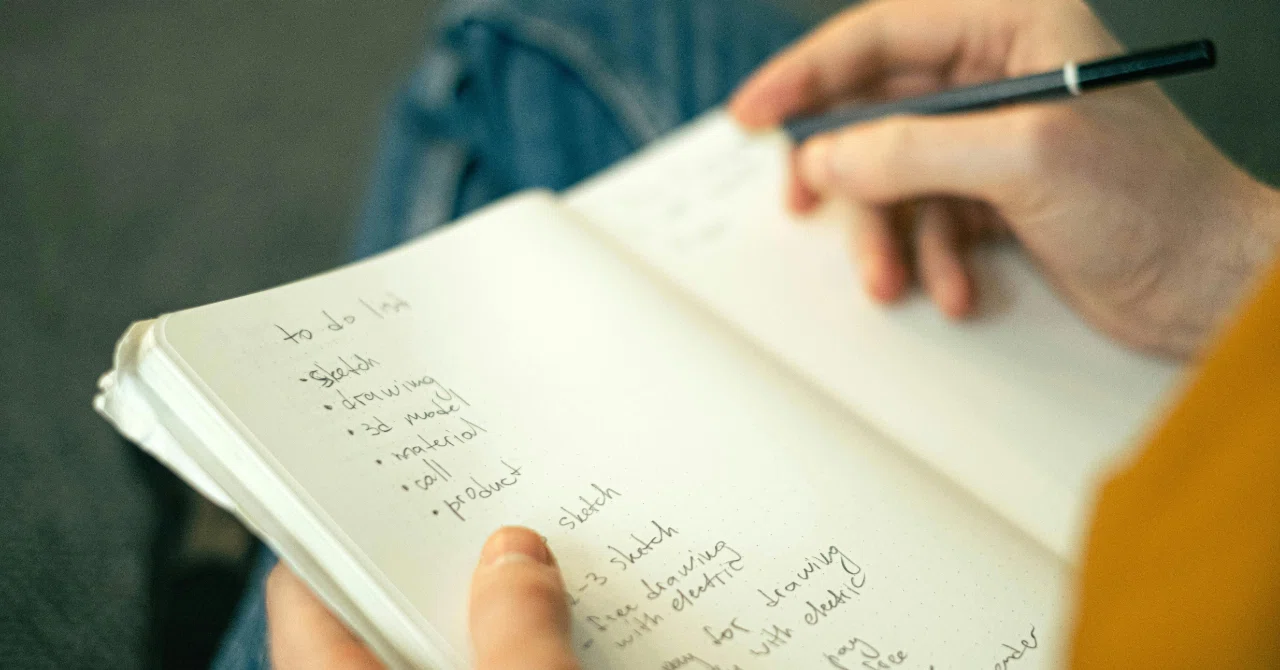 to do list
• sketch
• drawing
• 3d model
• material
• call
• product
sketch
-3 sketch
- free drawing
with electric
for drawing
with electric
pay